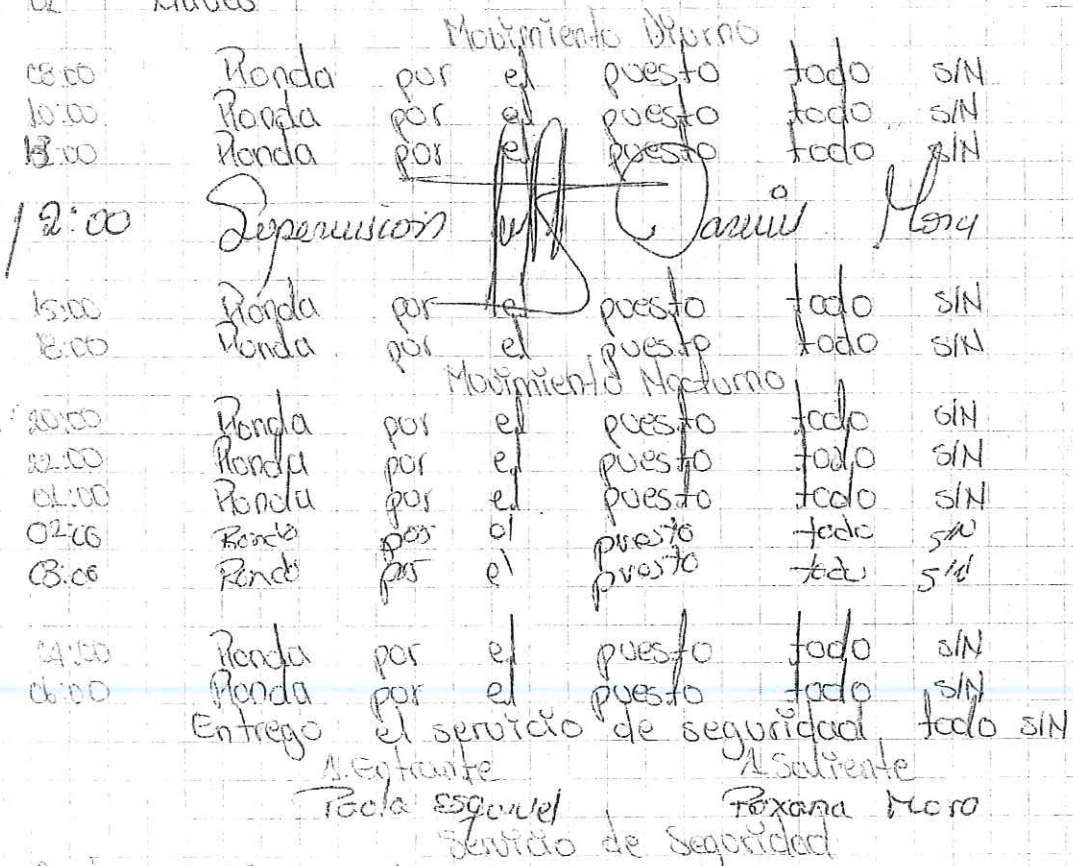 02
Movimiento Diurno
08:00 Ronda por el puesto todo S/N
10:00 Ronda por el puesto todo S/N
:00 Ronda por el puesto todo S/N
12:00 Supervision Mora
15:00 Ronda por el puesto todo S/N
18:00 Ronda por el puesto todo S/N
Movimiento Nocturno
20:00 Ronda por el puesto todo S/N
22:00 Ronda por el puesto todo S/N
01:00 Ronda por el puesto todo S/N
02:00 Ronda por el puesto todo S/N
03:00 Ronda por el puesto todo S/N
04:00 Ronda por el puesto todo S/N
06:00 Ronda por el puesto todo S/N
Entrego el servicio de seguridad todo S/N
A. Entrante A. Saliente
Paola Esquivel Roxana Moro
Servicio de Seguridad